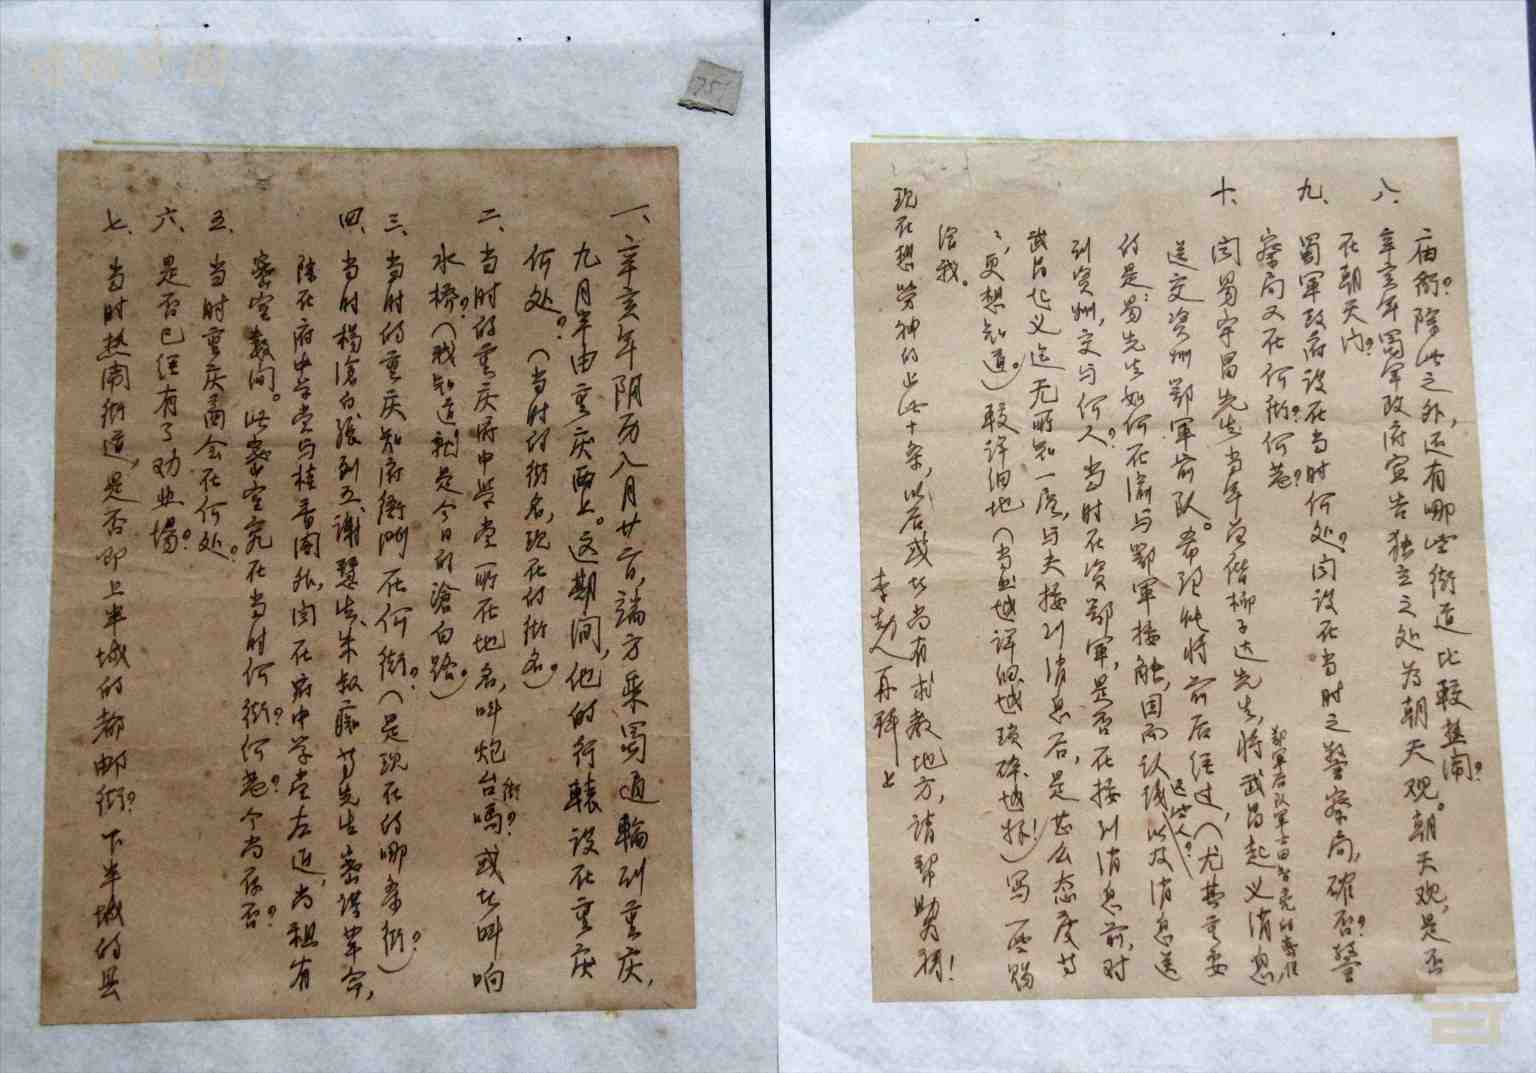 一、辛亥年阴历八月廿六日，端方乘蜀通輪到重庆，
九月半由重庆西上。这期间，他的行轅设在重庆
何处？（当时的街名，现在的街名。）
二、当时的重庆府中学堂所在地名，叫炮台街嗎？或者叫响
水橋？（我知道就是今日的滄白路。）
三、当时的重庆知府衙门在何街？（是现在的哪条街？）
四、当时楊滄白、張列五、謝慧生、朱叔痴等先生密谋革命，
除在府中学堂与桂香阁外，闻在府中学堂左近，尚租有
密室数间。此密室究在当时何街？何巷？今尚存否？
五、当时重庆商会在何处？
六、是否已经有了劝业場？
七、当时热闹街道，是否即上半城的都邮街？下半城的县
庙街？除此之外，还有哪些街道比較热闹？
八、辛亥年蜀军政府宣告独立之处为朝天观。朝天观，是否
在朝天门？
九、蜀軍政府设在当时何处？闻设在当时之警察局，確否？警
察局又在何街？何巷？
十、闻蜀宇昌先生当年曾偕柳子达先生，将武昌起义消息，
送交资州鄂軍前队。希望能将前后经过，（尤其重要
鄂軍后队軍士田智亮的
这些人？
的是：蜀先生如何在渝与鄂軍接触，因而认识以及消息送
到资州，交与何人？当时在资鄂軍，是否在接到消息前，对
武昌起义迄无所知一层，与夫接到消息后，是甚么态度等
等，更想知道。）較详细地（当然越详细、越瑣碎、越好！）写一些賜
给我。
现在想勞神的止此十条，以后或者尚有求教地方，請帮助为禱！
李劼人再拜上
751